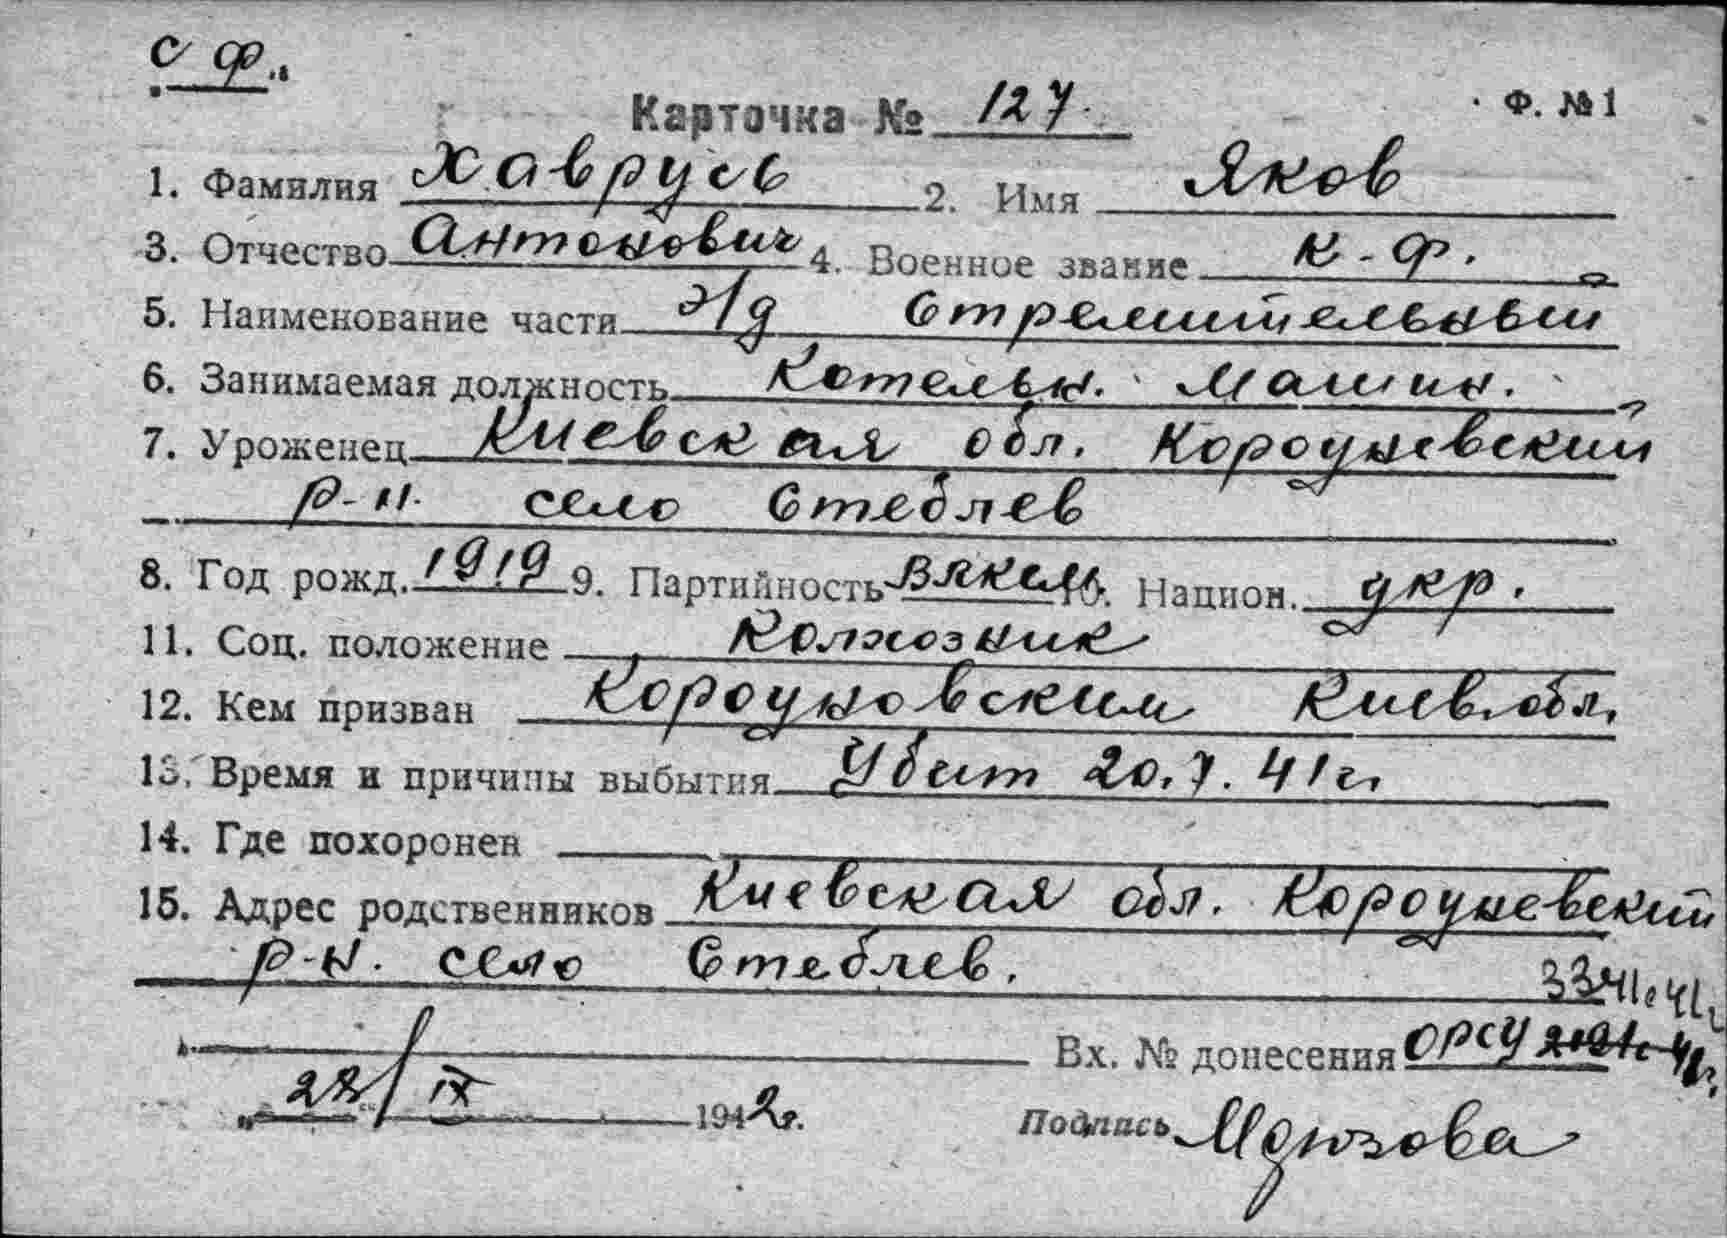 С Ф.
Карточка № 127. Ф. №1
1. Фамилия Хаврусь 2. Имя Яков
3. Отчество Антонович 4. Военное звание к-ф.
5. Наименование части э/д Стремительный
6. Занимаемая должность Котельн. Машин.
7. Уроженец Киевская обл. Короуневский
р-н. село Стеблев
8. Год рожд. 1919 9. Партийность 10. Национ. укр.
11. Соц. положение Колхозник
12. Кем призван Короуновским Киев. обл.
13. Время и причины выбытия Убит 20.7.41г.
14. Где похоронен
15. Адрес родственников Киевская обл. Короуневский
р-н. село Стеблев.
3341с 41г
Вх. № донесения ОРСУ
28/IX 1942г.
Подпись